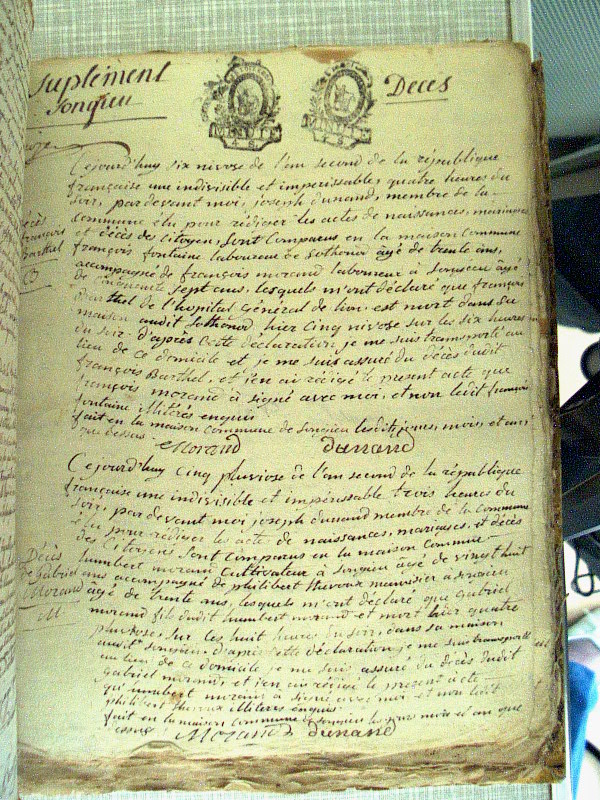 Suplément
Songieu
Décès
Cejourd'huy six nivose de l'an second de la république
françoise une indivisible et imperissable, quatre heures du
soir, pardevant moi, joseph dunand, membre de la
Commune élu pour rédiger les actes de naissances, mariages
et décès des citoyens, sont comparus en la maison Commune
françois fontaine laboureur de Sothonod âgé de trente ans,
accompagné de françois morand laboureur à Songieu âgé
de cinquante sept ans, lesquels m'ont déclaré que françois
Barthel de l'hopital Général de lion est mort dans sa
maison audit Sothonod hier Cinq nivose sur les six heures
du soir. d'après Cette déclaration je me suis transporté au
lieu de ce domicile et je me suis assuré du décès dudit
françois Barthel, et j'en ai rédigé le présent acte que
françois morand à signé avec moi, et non ledit françois
fontaine illiteré enquis
fait en la maison commune de songieu lesdits jours, mois et an
que dessus.
Morand dunand
Décès
françois
Barthel
Cejourd'huy Cinq pluviose de l'an second de la république
françoise une indivisible et impérissable trois heures du
soir, pardevant moi joseph dunand membre de la Commune
élu pour rédiger les acte de naissances, mariages, et décès
des Citoyens sont comparus en la maison Commune
humbert morand Cultivateur à songieu âgé de vingt huit
ans accompagné de philibert
âgé de trente ans, lesquels m'ont déclaré que Gabriel
morand fils dudit humbert morand est mort hier quatre
pluviose, sur les huit heures du soir, dans sa maison
audit songieu, d'après Cette déclaration je me suis transporté
au lieu de ce domicile je me suis assuré du décès dudit
Gabriel morand et j'en ai rédigé le présent acte
qu'humbert morand à signé avec moi et non ledit
philibert illiteré enquis
fait en la maison Commune de songieu les jours mois et an que
dessus
Morand dunand
Décès
de Gabriel
Morand